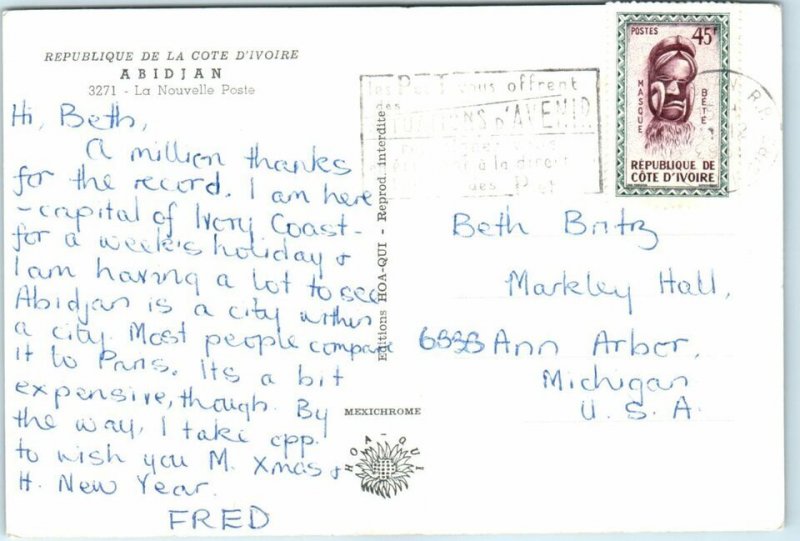 REPUBLIQUE DE LA COTE D'IVOIRE
ABIDJAN
3271 - La Nouvelle Poste
Hi, Beth,
A million thanks
for the record. I am here
- capital of Ivory Coast -
for a week's holiday &
I am having a lot to see
Abidjan is a city within
a city. Most people compare
it to Paris. Its a bit
expensive, though. By
the way, I take opp.
to wish you M. Xmas &
H. New Year.
FRED
Editions HOA-QUI - Reprod. interdite
MEXICHROME
HOA-QUI
les P et T vous offrent
des
D'AVENIR
à la direct
des P et
POSTES 45F
MASQUE BÉTÉ
RÉPUBLIQUE DE
CÔTE D'IVOIRE
Beth Britz
Markley Hall,
6333 Ann Arbor,
Michigan
U. S. A.